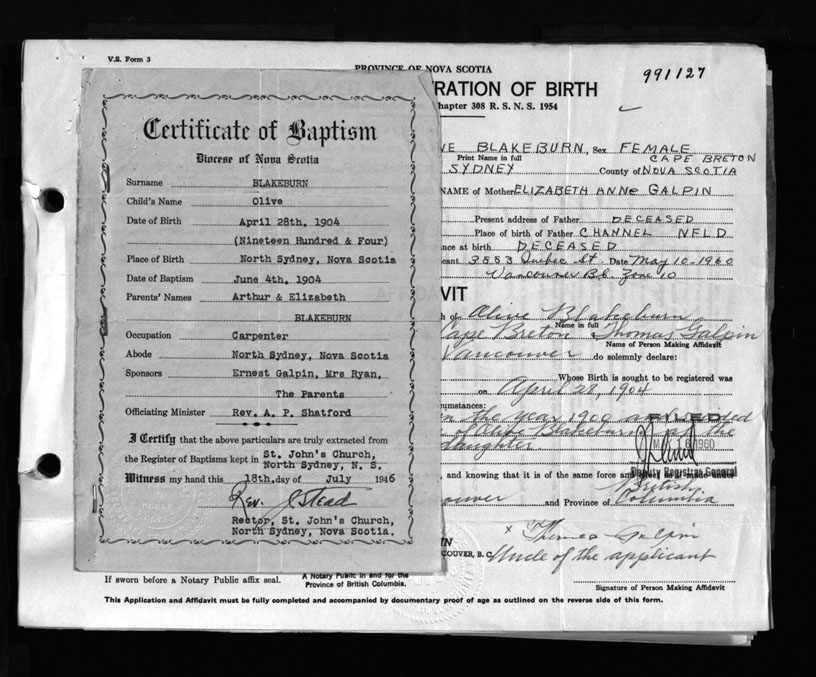 V.S. Form 3
PROVINCE OF NOVA SCOTIA
991127
RATION OF BIRTH
hapter 308 R. S. N. S. 1954
Certificate of Baptism
Diocese of Nova Scotia
Surname BLAKEBURN
Child's Name Olive
Date of Birth April 28th. 1904
(Nineteen Hundred & Four)
Place of Birth North Sydney, Nova Scotia
Date of Baptism June 4th. 1904
Parents' Names Arthur & Elizabeth
BLAKEBURN
Occupation Carpenter
Abode North Sydney, Nova Scotia
Sponsors Ernest Galpin, Mrs Ryan,
The Parents
Officiating Minister Rev. A. P. Shatford
I Certify that the above particulars are truly extracted from
the Register of Baptisms kept in St. John's Church,
North Sydney, N. S.
Witness my hand this 18th. day of July 1946
Rev. J Stead
Rector, St. John's Church,
North Sydney, Nova Scotia.
VE BLAKEBURN, Sex FEMALE
Print Name in full
CAPE BRETON
SYDNEY County of NOVA SCOTIA
NAME of Mother ELIZABETH ANNE GALPIN
Present address of Father DECEASED
Place of birth of Father CHANNEL NFLD
nce at birth DECEASED
cant 3883 Quebec St. Date May 10-1960
Vancouver B.C. Zone 10
VIT
h of Olive Blakeburn
Name in full
Cape Breton Thomas Galpin
Name of Person Making Affidavit
Vancouver do solemnly declare:
Whose Birth is sought to be registered was
on April 28, 1904
cumstances:
in the year 1900
of Olive Blakeburn the
daughter
FILED
1960
Deputy Registrar General
, and knowing that it is of the same force and
ouver and Province of British
Columbia
COUVER, B. C.
x Thomas Galpin
Uncle of the applicant
Signature of Person Making Affidavit
If sworn before a Notary Public affix seal.
A Notary Public in and for the
Province of British Columbia.
This Application and Affidavit must be fully completed and accompanied by documentary proof of age as outlined on the reverse side of this form.